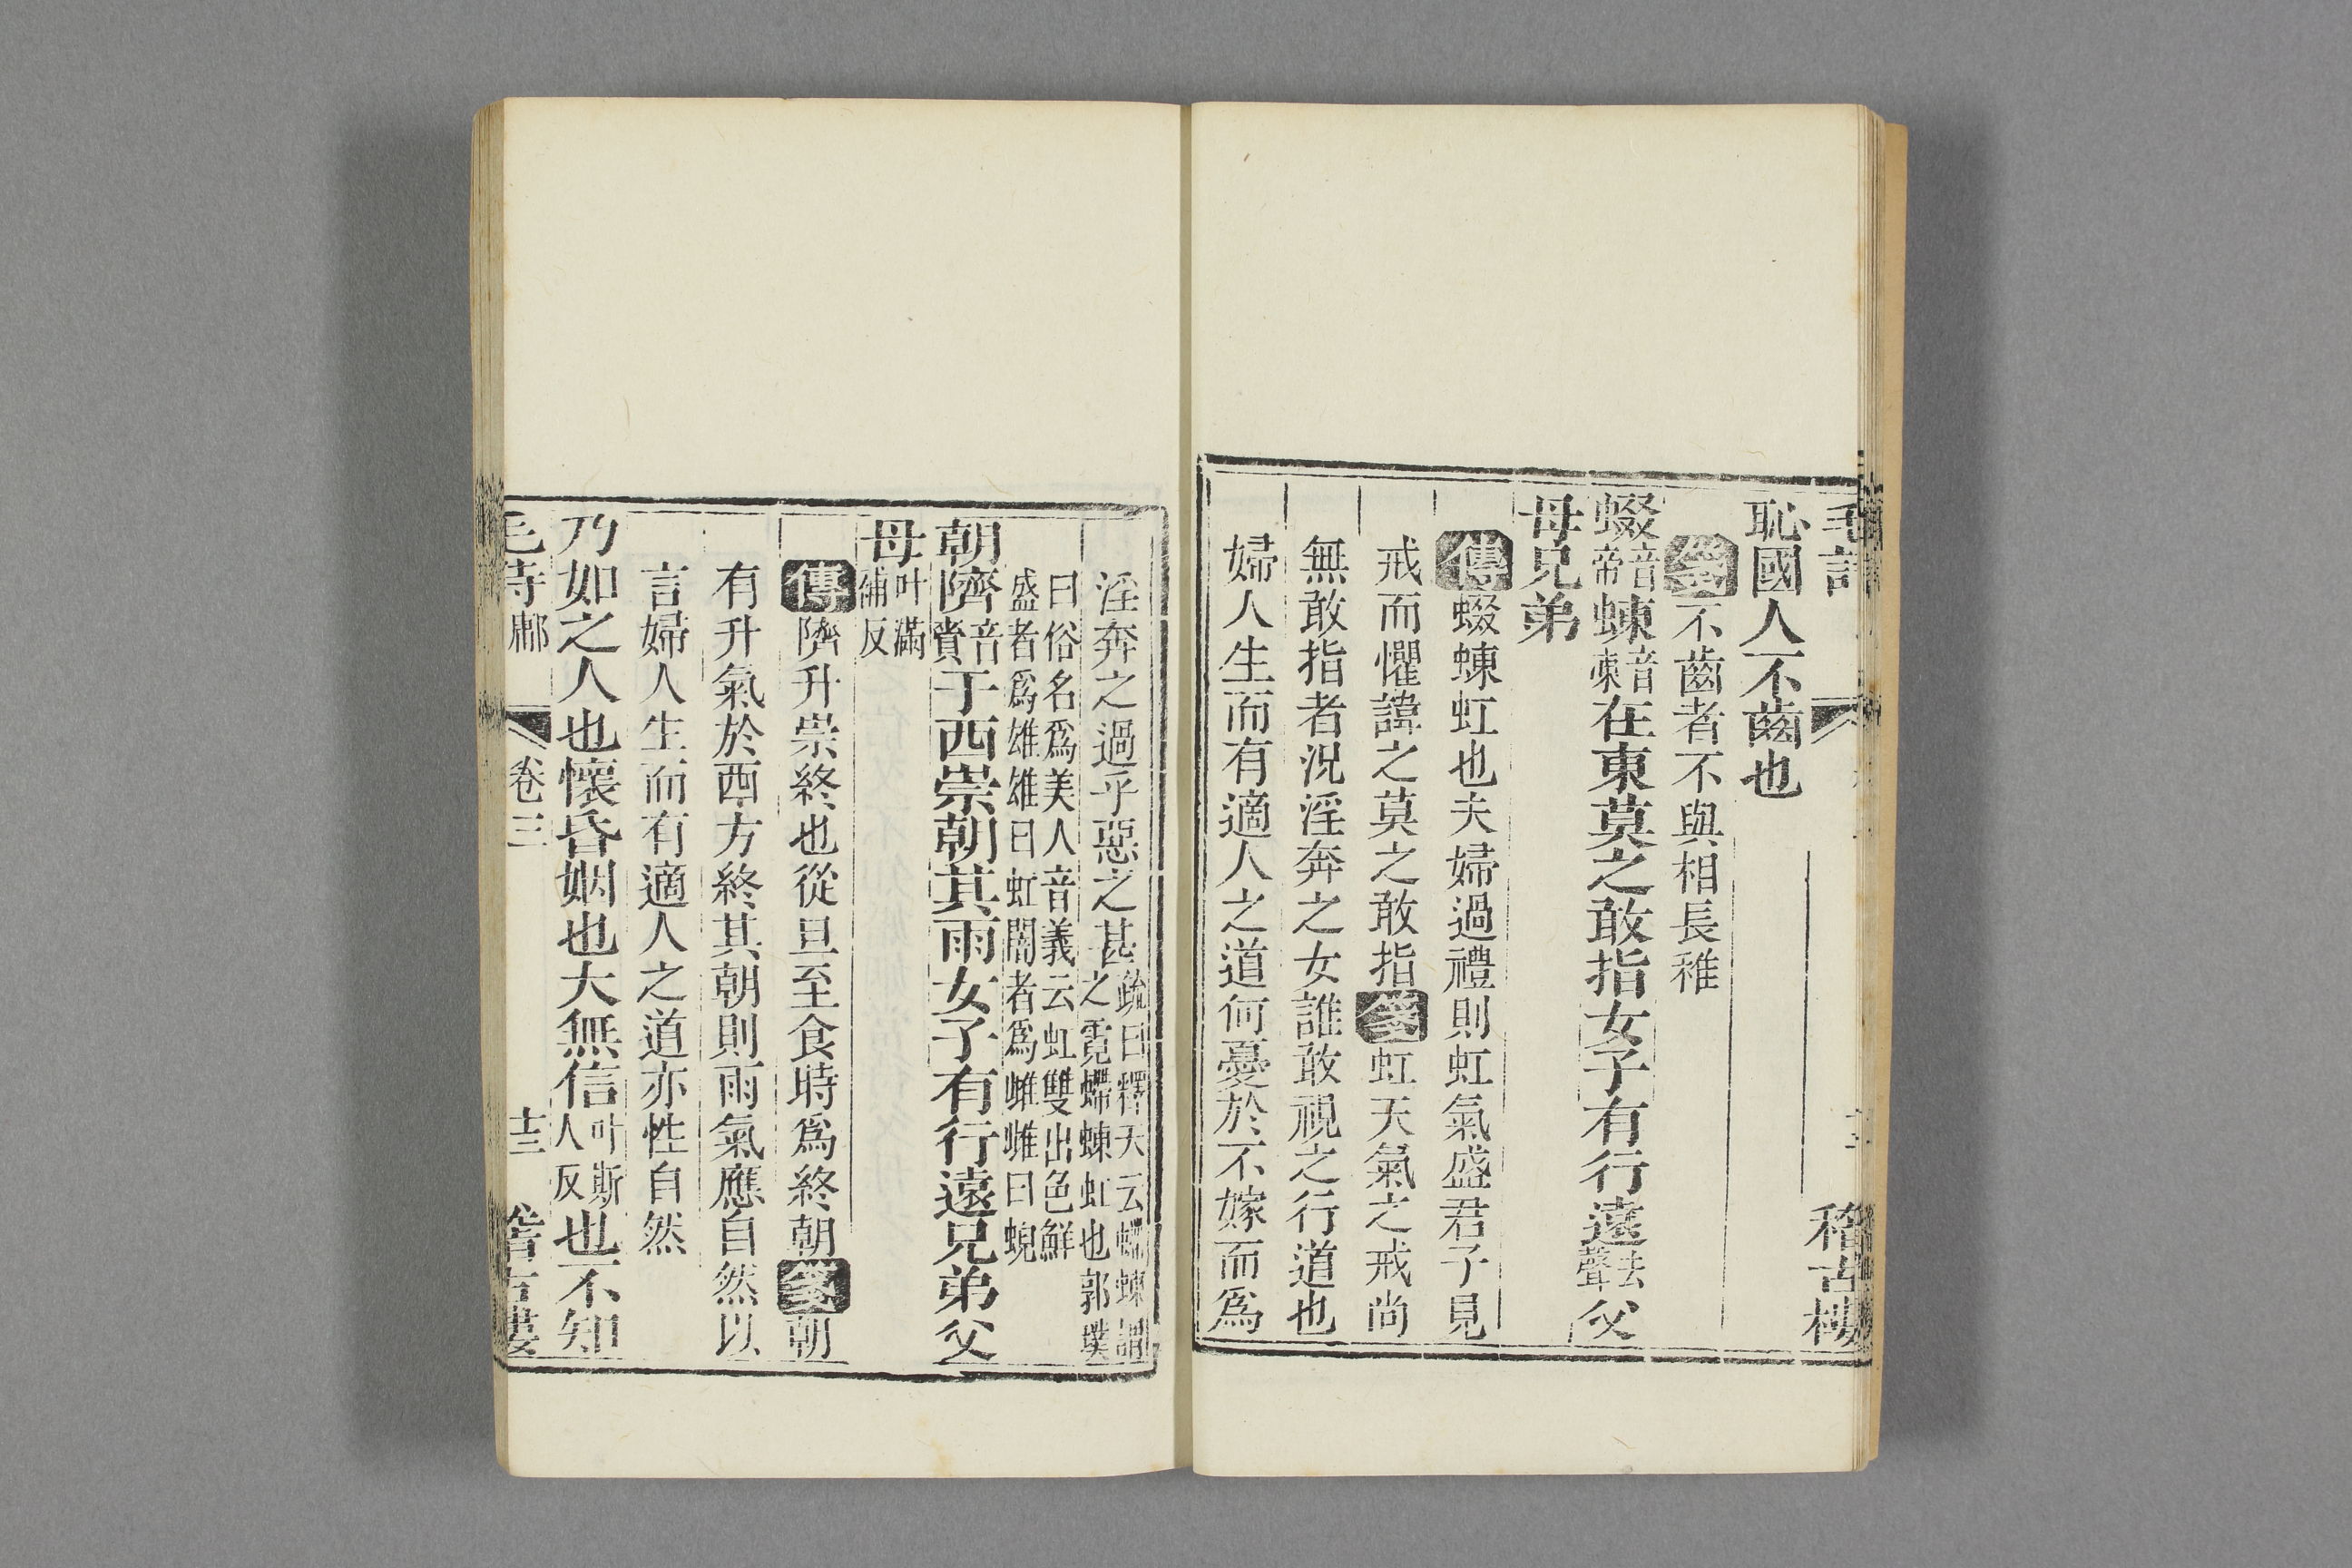 毛詩
稽古樓
恥國人不齒也
箋不齒者不與相長稚
蝃音帝蝀音蝀在東莫之敢指女子有行遠去聲父
母兄弟
傳蝃蝀虹也夫婦過禮則虹氣盛君子見
戒而懼諱之莫之敢指箋虹天氣之戒尚
無敢指者況淫奔之女誰敢視之行道也
婦人生而有適人之道何憂於不嫁而爲
淫奔之過乎惡之甚疏曰釋天云螮蝀謂之雩螮蝀虹也郭璞
曰俗名爲美人音義云虹雙出色鮮
盛者爲雄雄曰虹闇者爲雌雌曰蜺
朝隮音賫于西崇朝其雨女子有行遠兄弟父
母叶滿補反
傳隮升崇終也從旦至食時爲終朝箋朝
有升氣於西方終其朝則雨氣應自然以
言婦人生而有適人之道亦性自然
乃如之人也懷昏姻也大無信叶斯人反也不知
毛詩鄘 卷三 十三 稽古樓